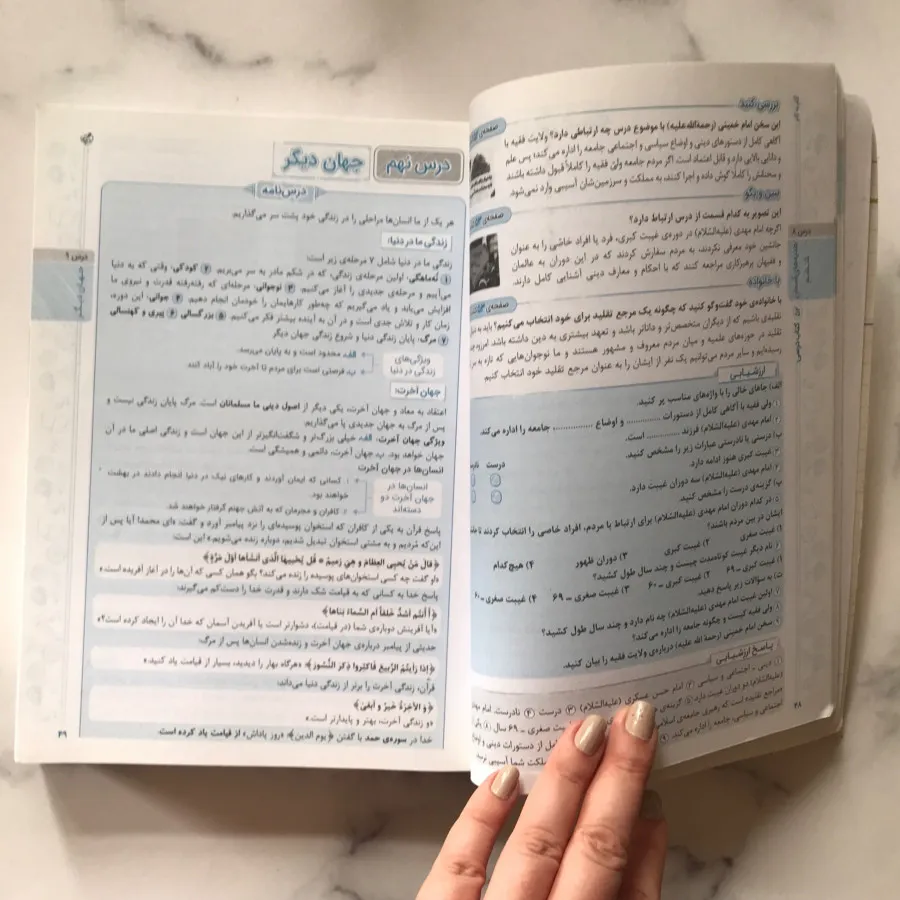 بررسی کنید
این سخن امام خمینی (رحمةالله‌علیه) با موضوع درس چه ارتباطی دارد؟ ولایت فقیه با
آگاهی کامل از دستورهای دینی و اوضاع سیاسی و اجتماعی جامعه را اداره می‌کند؛ پس علم
و دانایی بالایی دارد و قابل اعتماد است اگر مردم جامعه ولیّ فقیه را کاملاً قبول داشته باشند
و سخنانش را کاملاً گوش داده و اجرا کنند، به مملکت و سرزمین‌شان آسیبی وارد نمی‌شود.
ببین و بگو
این تصویر به کدام قسمت از درس ارتباط دارد؟
اگرچه امام مهدی (علیه‌السّلام) در دوره‌ی غیبت کبری، فرد یا افراد خاصی را به عنوان
جانشین خود معرفی نکردند، به مردم سفارش کردند که در این دوران به عالمان
و فقیهان پرهیزکاری مراجعه کنند که با احکام و معارف دینی آشنایی کامل دارند.
با خانواده
با خانواده‌ی خود گفت‌وگو کنید که چگونه یک مرجع تقلید برای خود انتخاب می‌کنیم؟ باید به
تقلیدی باشیم که از دیگران متخصص‌تر و داناتر باشد و تعهد بیشتری به دین داشته باشد امروزه
تقلید در حوزه‌های علمیه و میان مردم معروف و مشهور هستند و ما نوجوان‌هایی که تازه به
رسیده‌ایم و سایر مردم می‌توانیم یک نفر از ایشان را به عنوان مرجع تقلید خود انتخاب کنیم.
ارزشیابی
الف) جاهای خالی را با واژه‌های مناسب پر کنید.
۱. ولی فقیه با آگاهی کامل از دستورات ............ و اوضاع ............ جامعه را اداره می‌کند.
۲. امام مهدی (علیه‌السّلام) فرزند ............ است.
ب) درستی یا نادرستی عبارات زیر را مشخص کنید.
درست
۳. غیبت کبری هنوز ادامه دارد.
۴. امام مهدی (علیه‌السّلام) سه دوران غیبت دارد.
پ) گزینه‌ی درست را مشخص کنید.
۵. در کدام دوران امام مهدی (علیه‌السّلام) برای ارتباط با مردم، افراد خاصی را انتخاب کردند تا
ایشان در بین مردم باشند؟
۱) غیبت صغری ۲) غیبت کبری ۳) دوران ظهور ۴) هیچ‌کدام
۶. نام دیگر غیبت کوتاه‌مدت چیست و چند سال طول کشید؟
۱) غیبت کبری ـ ۶۹ ۲) غیبت کبری ـ ۶۰ ۳) غیبت صغری ـ ۶۹ ۴) غیبت صغری ـ ۶۰
ت) به سؤالات زیر پاسخ دهید.
۷. اولین غیبت امام مهدی (علیه‌السّلام) چه نام دارد و چند سال طول کشید؟
۸. ولی فقیه کیست و چگونه جامعه را اداره می‌کند؟
۹. سخن امام خمینی (رحمة الله علیه) درباره‌ی ولایت فقیه را بیان کنید.
پاسخ ارزشیابی
۱ دینی ـ اجتماعی و سیاسی ۲ امام حسن عسکری (علیه‌السّلام) ۳ درست ۴ نادرست. امام
۴۸
درس ۸
درس نهم
جهان دیگر
درس‌نامه
هر یک از ما انسان‌ها مراحلی را در زندگی خود پشت سر می‌گذاریم.
زندگی ما در دنیا:
زندگی ما در دنیا شامل ۷ مرحله‌ی زیر است:
۱ نُه‌ماهگی: اولین مرحله‌ی زندگی، که در شکم مادر به سر می‌بریم. ۲ کودکی: وقتی که به دنیا
می‌آییم و مرحله‌ی جدیدی را آغاز می‌کنیم. ۳ نوجوانی: مرحله‌ای که رفته‌رفته قدرت و نیروی ما
افزایش می‌یابد و یاد می‌گیریم که چه‌طور کارهایمان را خودمان انجام دهیم. ۴ جوانی: این دوره،
زمان کار و تلاش جدی است و در آن به آینده بیشتر فکر می‌کنیم. ۵ بزرگسالی ۶ پیری و کهنسالی
۷ مرگ: پایان زندگی دنیا و شروع زندگی جهان دیگر
ویژگی‌های زندگی در دنیا
الف. محدود است و به پایان می‌رسد.
ب. فرصتی است برای مردم تا آخرت خود را آباد کنند.
جهان آخرت:
اعتقاد به معاد و جهان آخرت، یکی دیگر از اصول دینی ما مسلمانان است. مرگ پایان زندگی نیست و
پس از مرگ به جهان جدیدی پا می‌گذاریم.
ویژگی جهان آخرت: الف. خیلی بزرگ‌تر و شگفت‌انگیزتر از این جهان است و زندگی اصلی ما در آن
جهان خواهد بود. ب. جهان آخرت، دائمی و همیشگی است.
انسان‌ها در جهان آخرت
انسان‌ها در جهان آخرت دو دسته‌اند
۱. کسانی که ایمان آوردند و کارهای نیک در دنیا انجام دادند در بهشت
خواهند بود.
۲. کافران و مجرمان که به آتش جهنم گرفتار خواهند شد.
پاسخ قرآن به یکی از کافران که استخوان پوسیده‌ای را نزد پیامبر آورد و گفت: «ای محمد! آیا پس از
این‌که مُردیم و به مشتی استخوان تبدیل شدیم، دوباره زنده می‌شویم.» این است:
﴿قالَ مَنْ یُحیِی العِظامَ وَ هِیَ رَمیم * قُل یُحییهَا الَّذی أنشَأها أوّلَ مَرَّةٍ﴾
«او گفت چه کسی استخوان‌های پوسیده را زنده می‌کند؟ بگو همان کسی که آن‌ها را در آغاز آفریده است.»
پاسخ خدا به کسانی که به قیامت شک دارند و قدرت خدا را دست‌کم می‌گیرند:
﴿أ أنتُم أشَدُّ خَلقاً أمِ السَّماءُ بَناها﴾
«آیا آفرینش دوباره‌ی شما (در قیامت)، دشوارتر است یا آفریدن آسمان که خدا آن را ایجاد کرده است؟»
حدیثی از پیامبر درباره‌ی جهان آخرت و زنده‌شدن انسان‌ها پس از مرگ:
﴿إذا رَأیتُمُ الرَّبیعَ فَاکثِروا ذِکرَ النُّشُورِ﴾: «هرگاه بهار را دیدید، بسیار از قیامت یاد کنید.»
قرآن، زندگی آخرت را برتر از زندگی دنیا می‌داند:
﴿وَ الآخِرَةُ خَیرٌ وَ أبقی﴾
«و زندگی آخرت، بهتر و پایدارتر است.»
خدا در سوره‌ی حمد با گفتن ﴿یوم الدین﴾، «روز پاداش» از قیامت یاد کرده است.
۴۹
درس ۹
جهان دیگر